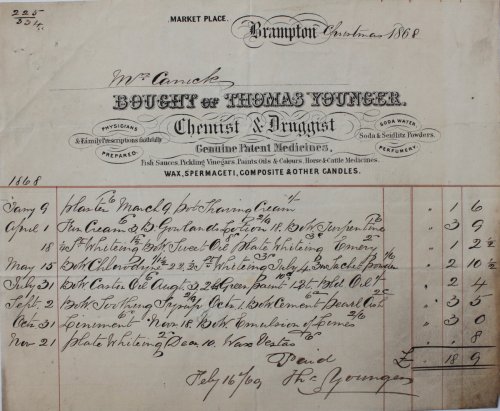 225
334
MARKET PLACE.
Brampton Christmas 1868
Mr Carrick
BOUGHT OF THOMAS YOUNGER.
Chemist & Druggist
PHYSICIANS & Family Prescriptions faithfully PREPARED.
SODA WATER Soda & Seidlitz Powders. PERFUMERY.
Genuine Patent Medicines,
Fish Sauces, Pickling Vinegars, Paints, Oils & Colours, Horse & Cattle Medicines,
WAX, SPERMACETI, COMPOSITE & OTHER CANDLES.
1868
Jany 9 plaster March 9 pot Shaving Cream 1 6
April 1 Cream Goulands Lotion 18. Bott Turpentine 3 9
18 Whiteing Bott Sweet Oil plate Whiteing Emery 1 2½
May 15 Bott Chlorodyne 22. Whiteing July 4 2 10½
July 31 Bott Castor Oil Aug 3. Green paint Oil 2 4
Sept. 2 Bott Soothing Syrup Oct 1. Bott Cement pearl Ash 3 5
Oct 31 Liniment Nov 18. Bott Emulsion of Limes 3 0
Nov 21 plate Whiteing Decr 10. Wax Vestas 8
Paid £ 18 9
Feby 16/69 Thos Younger